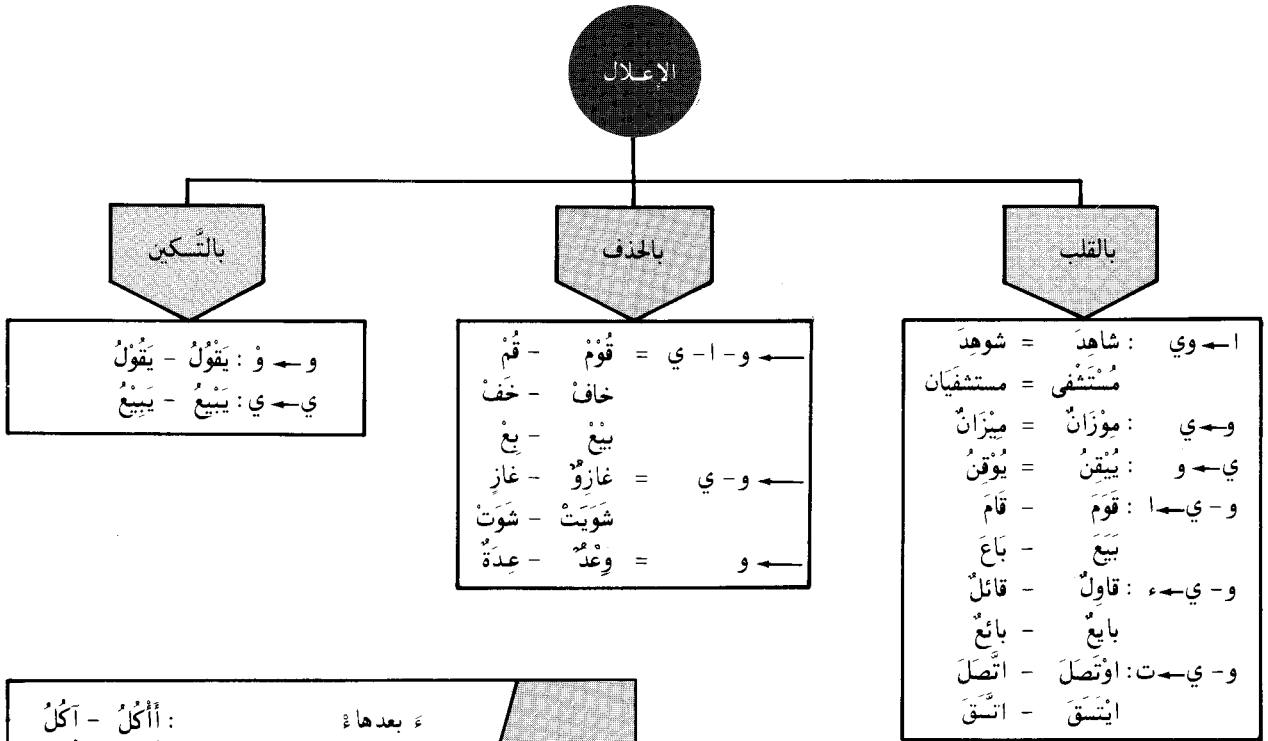 الإعلال
بالقلب
ا ← وي : شاهِدَ = شوهِدَ
مُسْتَشْفى = مستشفَيَان
و ← ي : مِوْزَانٌ = مِيْزَانٌ
ي ← و : يُيْقِنُ = يُوْقِنُ
و - ي ← ا : قَوَمَ - قَامَ
بَيَعَ - بَاعَ
و - ي ← ء : قاوِلٌ - قائلٌ
بايعٌ - بائعٌ
و - ي ← ت : اوْتَصَلَ - اتَّصَلَ
ايْتَسَقَ - اتَّسَقَ
بالحذف
و - ا - ي ← = قُوْمْ - قُمْ
خافْ - خَفْ
بيْعْ - بِعْ
و - ي ← = غازِوٌ - غازٍ
شَوَيَتْ - شَوَتْ
و ← = وِعْدٌ - عِدَةٌ
بالتَّسكين
و ← وْ : يَقْوُلُ - يَقُوْلُ
ي ← ي : يَبْيِعُ - يَبِيْعُ
ءَ بعدها ءْ : أَأْكُلُ - آكُلُ